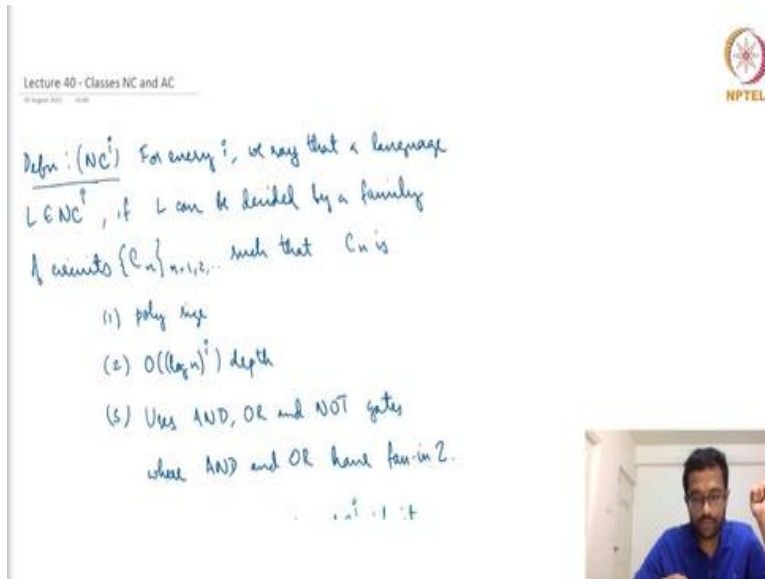 Lecture 40 - Classes NC and AC
NPTEL
Defn : (NC^i) For every i, we say that a language
L ∈ NC^i, if L can be decided by a family
of circuits {C_n}_{n=1,2,..} such that C_n is
(1) poly size
(2) O((log n)^i) depth
(3) Uses AND, OR and NOT gates
where AND and OR have fan-in 2.